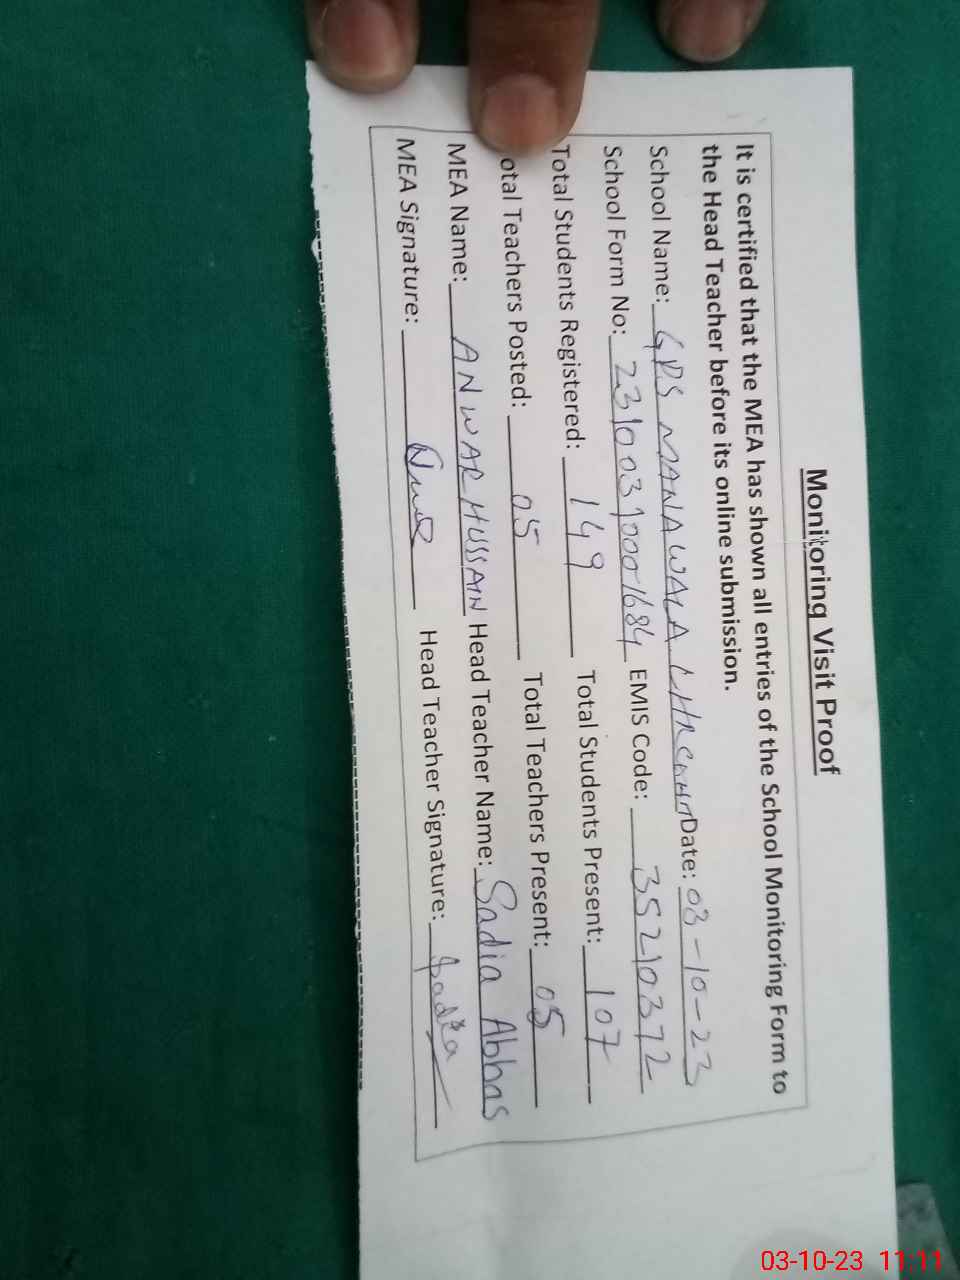 Monitoring Visit Proof
It is certified that the MEA has shown all entries of the School Monitoring Form to
the Head Teacher before its online submission.
School Name: GPS MANAWALA LHR CANTT Date: 03-10-23
School Form No: 231003100016 84 EMIS Code: 35210372
Total Students Registered: 149 Total Students Present: 107
otal Teachers Posted: 05 Total Teachers Present: 05
MEA Name: ANWAR HUSSAIN Head Teacher Name: Sadia Abbas
MEA Signature: Head Teacher Signature: Sadia
03-10-23 11:11